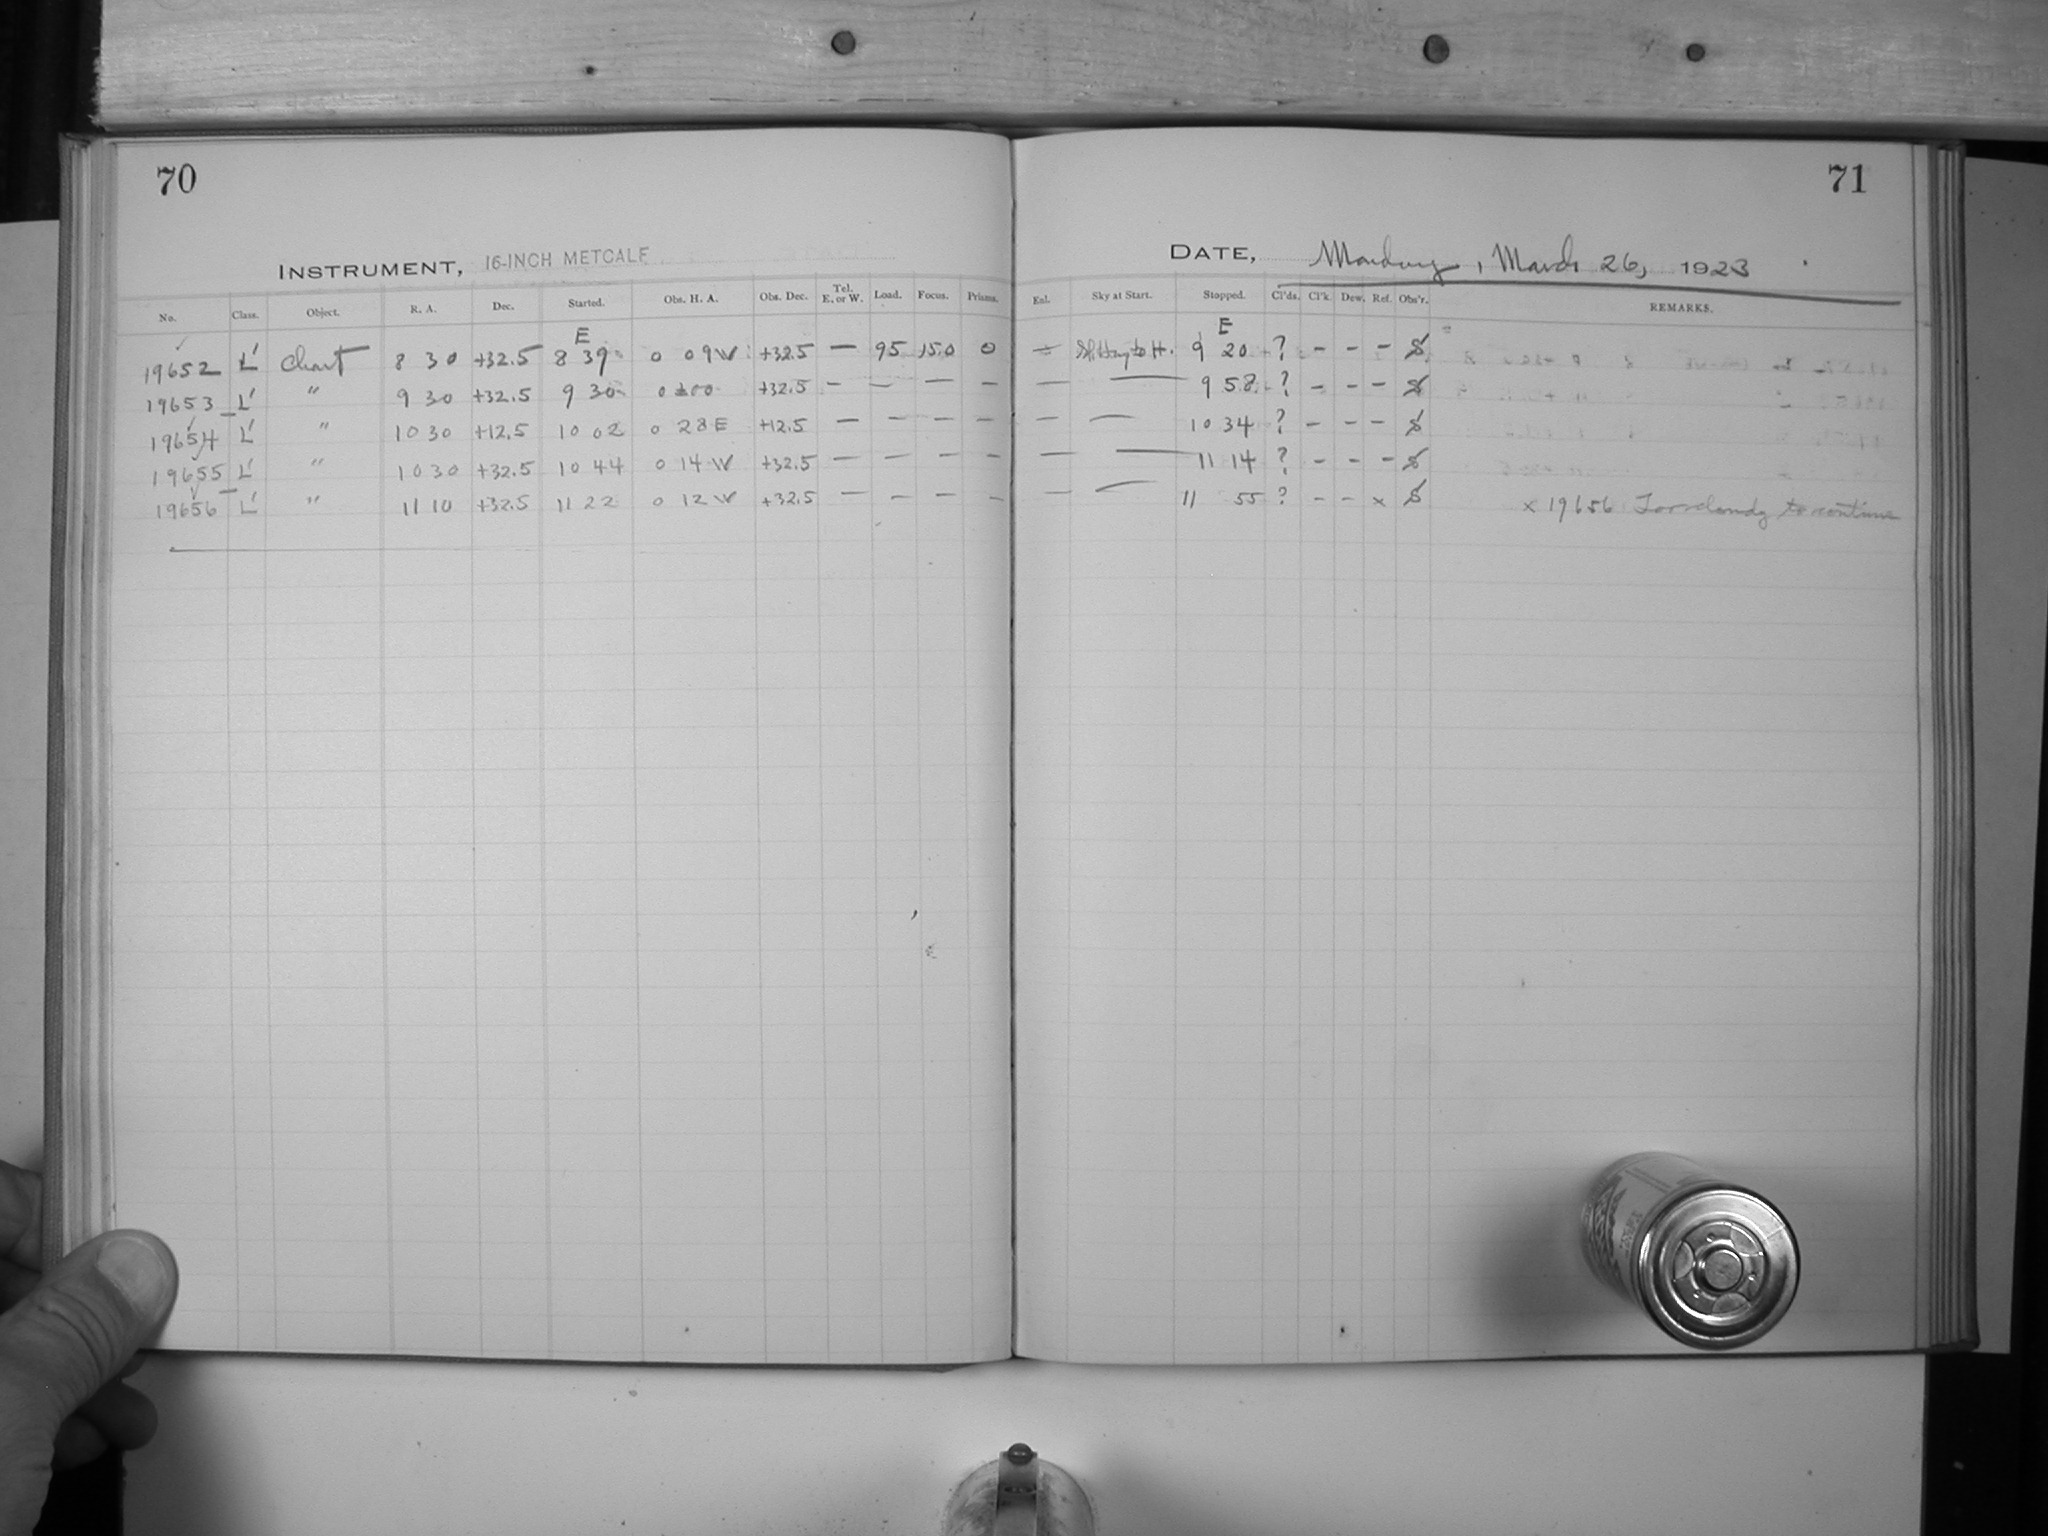 70
71
INSTRUMENT, 16-INCH METCALF
DATE, Monday, March 26, 1923
No. Class. Object. R. A. Dec. Started. Obs. H. A. Obs. Dec. Tel. E. or W. Load. Focus. Prisms. Enl. Sky at Start. Stopped. Cl'ds. Cl'k. Dew. Ref. Obs'r. REMARKS.
E E
19652 L' Chart 8 30 +32.5 8 39 0 09 W +32.5 — 95 15.0 0 — Sl. Hazy to H. 9 20 ? - - - S
19653 L' " 9 30 +32.5 9 30 0 ±00 +32.5 — — — — — — 9 58 ? - - - S
19654 L' " 10 30 +12.5 10 02 0 28 E +12.5 — — — — — — 10 34 ? - - - S
19655 L' " 10 30 +32.5 10 44 0 14 W +32.5 — — — — — — 11 14 ? - - - S
19656 L' " 11 10 +32.5 11 22 0 12 W +32.5 — — — — — — 11 55 ? - - x S x 19656 Too cloudy to continue